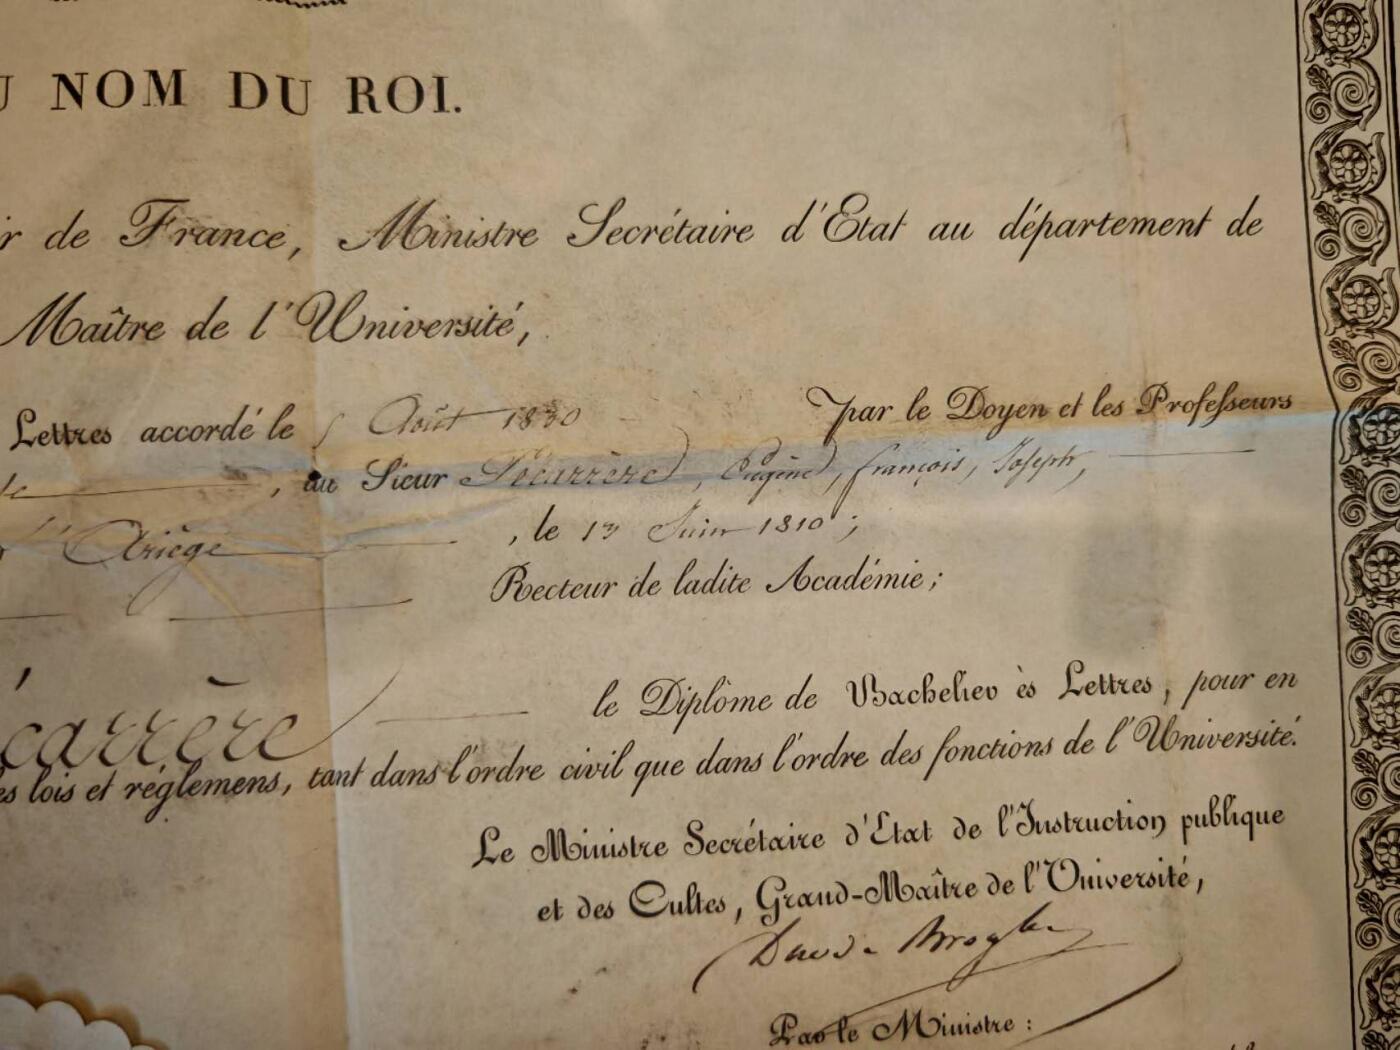 NOM DU ROI.
de France, Ministre Secrétaire d'Etat au département de
Maître de l'Université,
Lettres accordé le 5 Août 1830 par le Doyen et les Professeurs
, au Sieur Sécarrère, Eugène, françois, Joseph,
l'Ariège , le 13 Juin 1810 ;
Recteur de ladite Académie ;
écarrère le Diplôme de Bachelier ès Lettres, pour en
es lois et réglemens, tant dans l'ordre civil que dans l'ordre des fonctions de l'Université.
Le Ministre Secrétaire d'Etat de l'Instruction publique
et des Cultes, Grand-Maître de l'Université,
Duc de Broglie
Par le Ministre :